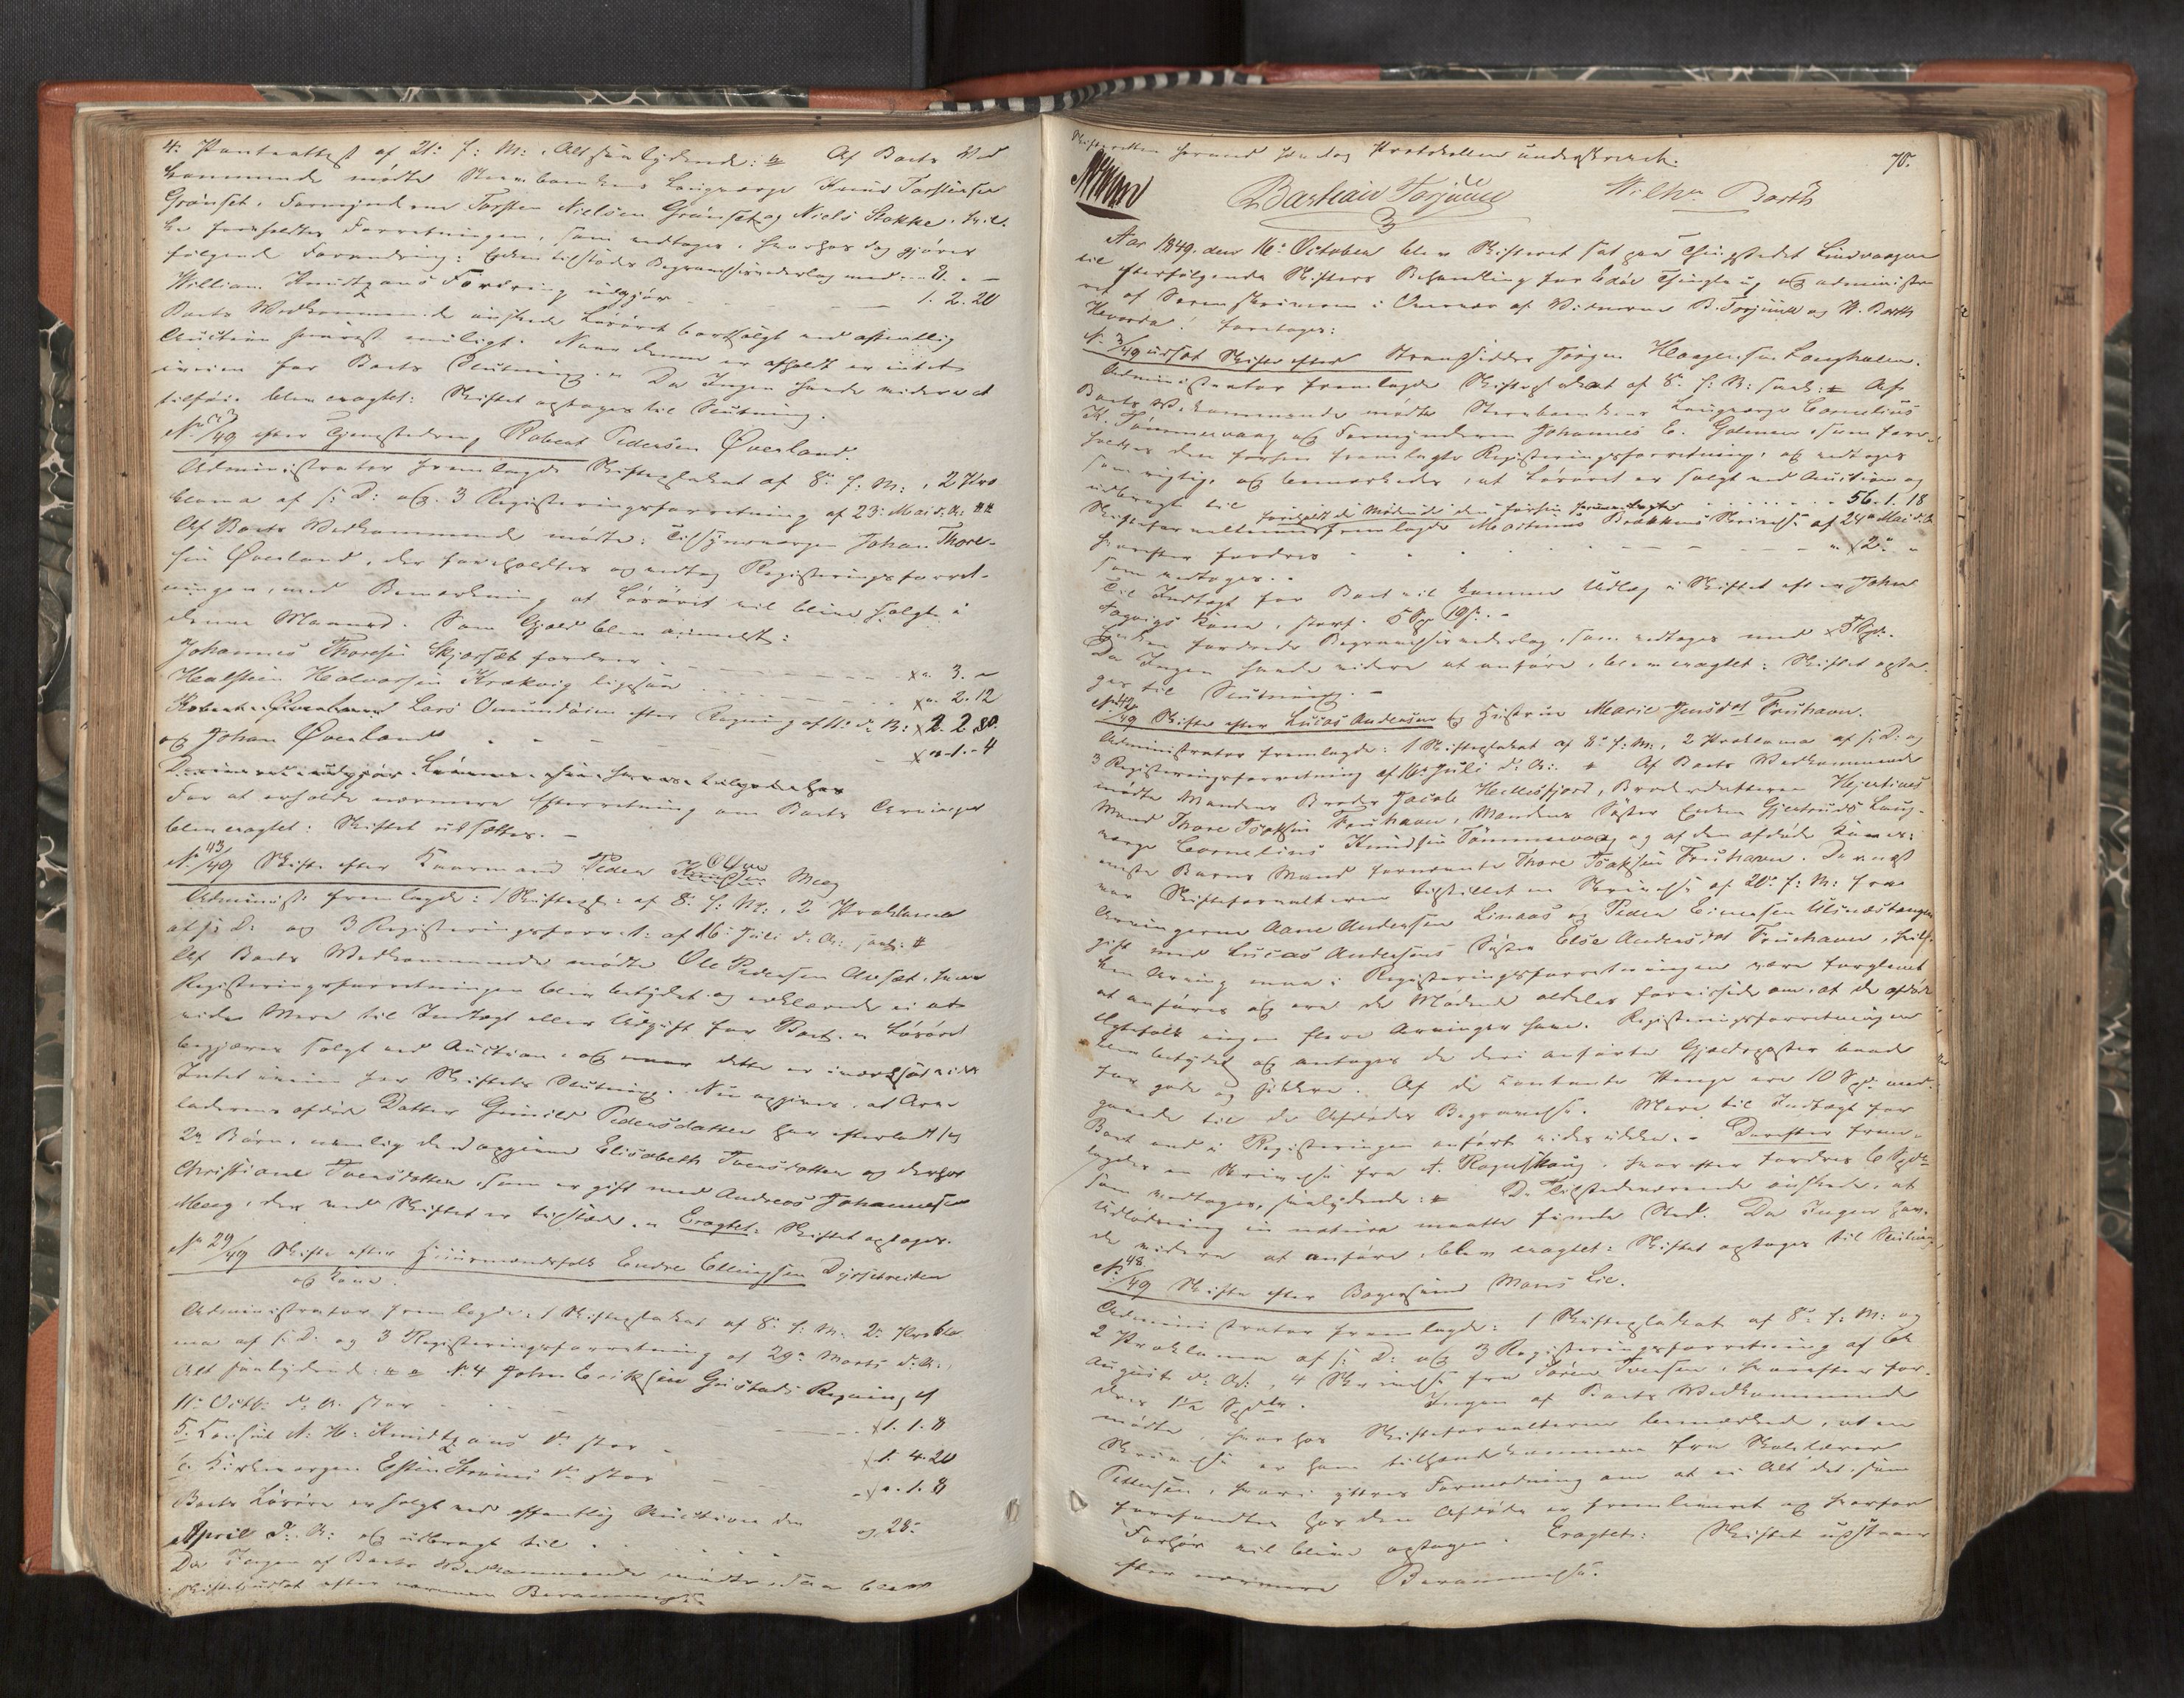 4: Panteattest af 21: f: M:, Alt saalydende: # Af Boets Ved
kommende mødte Steervboenkens Laugværge Knud Torstensen
Grønset, Formynderne Torsten Nielsen Grønset og Niels Stokke, hvil
ke foreholdtes Forretningen, som vedtoges, hvorhos dog gjøres
følgende Forandring: Enken tilstodes Begravelsesvederlag med 8. "
William Knudtzons Fordring udgjør 1. 2. 20
Boets Vedkommende ønskede Løsøret bortsolgt ved offentlig
Auction snarest muligt. Naar denne er afholdt er intet
iveien for Boets Slutning. Da Ingen havde videre at
tilføie blev eragtet: Skiftet optages til Slutning.
No /49 efter Tjenestedreng Robert Pedersen Øverland.
Administrator fremlagde Skifteplakat af 8: f: M:, 2 Pro
klama af s: D: og 3 Registeringsforretning af 23: Mai d. A: ##
Af Boets Vedkommende mødte: Tilsynsværgen Johan Thore-
sen Øverland, der foreholdtes og vedtog Registeringsforret-
ningen, med Bemærkning at Løsøret vil blive solgt i
denne Maaned. Som Gjæld blev anmeldt:
Johannes Thoresen Skjorsæt fordrer x " 3. "
Halstein Halvorsen Krækvig ligesaa x " 2. 12
Lars Omundsøien efter Regning af 11: d. M: x 2. 2. 20
og Johan Øverland x " 1. 4
For at erholde nærmere Efterretning om Boets Arvinger
blev eragtet: Skiftet udsættes.
No 43/49 Skifte efter Kaarmand Peder Olsen Meeg
Administ: fremlagde: 1 Skiftepl: af 8: f: M:, 2 Proklama
af s: D: og 3 Registeringsforret: af 16: Juli d. A: saal: #
Af Boets Vedkommende mødte Ole Pedersen Aasæt, hvem
Registeringsforretningen blev betydet og erklærede ei at
vide Mere til Indtægt eller Udgift for Boet. Løsøret
begjæres solgt ved Auction, og naar dette er iværksat er
Intet iveien for Skiftets Slutning. Nu opgives, at Arve
laderens afdøde Datter Gunild Pedersdatter har efterladt sig
2 Børn, nemlig den opgivne Elisabeth Toresdatter og derhos
Christiane Toresdatter, som er gift med Andreas Johannesen
Meeg, der ved Skiftet er tilstæde. " Eragtet: Skiftet optages.
No 29/49 Skifte efter Huusmandsfolk Endre Ellingsen Dyrsetreiten
og Kone.
Administrator fremlagde: 1 Skifteplakat af 8: f: M: 2: Prokla
ma af s: D: og 3 Registeringsforretning af 29: Marts d. A:,
Alt saalydende: # # No 4 John Eriksen Gustads Regning af
11: Octb: d: A. stor x 1. 1. 8
5. Consul N: H: Knudtzons do stor x 1. 4. 20
6. Kirkeværgen Esten Strøms do stor x " 1. 8
Boets Løsøre er solgt ved offentlig Auction den
April d: A: og udbragt til og 28:
Da Ingen af Boets Vedkommende mødte, saa blev
Skiftet udsat efter nærmere Berammelse.
Skifteretten hævet for i dag Protokollen underskrevet. 70.
Bastian Torjusen Wilhm Barth
Aar 1849. den 16: October blev Skifteret sat paa Thingstedet Lindvaagen
til efterfølgende Skifters Behandling for Edøe Thinglaug og administre
ret af Sorenskriveren i Overvær af Vidnerne B. Torjusen og W. Barth
Hvorda! foretages:
No 3/49 udsat Skifte efter Strandsidder Jørgen Haagensen Langhalen.
Administrator fremlagde Skifteplakat af 8: f: M: saal: # Af
Boets Vedkommende mødte Steervboenkens Laugværge Cornelius
K. Tømmervaag og Formynderen Johannes E. Golmen, som fore-
holdtes den forhen fremlagte Registeringsforretning, og vedtoges
som rigtig, og bemærkedes, at Løsøret er solgt ved Auction og
udbragt til 56. 1. 18
Skifteforvalteren foreholdt de Mødende den forhen fremlagte Martinus Brækkens Skrivelse af 24: Mai d. A
hvorefter fordres " x 2: "
som vedtoges.
Til Indtægt for Boet vil komme Udlæg i Skiftet efter John
Aagvigs Kone, stort 5 Sp 19 s:
Enken fordrede Begravelsesvederlag, som vedtoges med x 5 Spd.
Da Ingen havde videre at anføre, blev eragtet: Skiftet opta-
ges til Slutning.
No 42/49 Skifte efter Lucas Andersen og Hustrue Marie Jensdtr Fruhavn.
Administrator fremlagde: 1 Skifteplakat af 8: f: M:, 2 Proklama af s: D: og
3 Registeringsforretning af 16: Juli d: A: # Af Boets Vedkommende
mødte Mandens Broder Jacob Hellesfjord, Broderdatteren
Mand Thore Isaksen Fruhavn, Mandens Søster Enken Gjertruds Laug-
værge Cornelius Knudsen Tømmervaag og af den afdøde Kones
eneste Barns Mand fornævnte Thore Isaksen Fruhavn. Dernæst
var Skifteforvalteren tilstillet en Skrivelse af 20: f: M: fra
Arvingerne Aane Andersen Linaas og Peder Einersen Ulsnæstangen
gift med Lucas Andersens Søster Else Andersdtr Fruhavn, hvil-
ken Arving maa i Registeringsforretningen være forglemt
at anføres og ere de Mødende aldeles forvissede om, at de afdøde
Ægtefolk ingen flere Arvinger have. Registeringsforretningen
blev betydet og antoges de deri anførte Gjældsposter baade
for gode og sikkre. Af de contante Penge ere 10 Spd. med-
gaaede til de Afdødes Begravelse. Mere til Indtægt for
Boet end i Registeringen anført vides ikke. Derefter frem-
lagdes en Skrivelse fra A. Rognskoug, hvorefter fordres 6 Spd.
som vedtoges, saalydende: # De Tilstedeværende ønskede, at
Udlodning in natura maatte finde Sted. Da Ingen hav-
de videre at anføre, blev eragtet: Skiftet optages til Slutning.
No 48/49 Skifte efter Bogensmed Mons Lie.
Administrator fremlagde: 1 Skifteplakat af 8: f: M: og
2 Proklama af s: D: og 3 Registeringsforretning af 6te
August d: A:, 4 Skrivelse fra Søren Svensen, hvorefter for-
dres 1½ Spdlr. Ingen af Boets Vedkommende
mødte, hvorhos Skifteforvalteren bemærkede, at en
Skrivelse er ham tilhændekommen fra Skolelærer
Pettersen, hvori yttres Formodning om at ei Alt det som
forefandtes hos den Afdøde er fremleveret og hvorfor
Forhør vil blive optagen. Eragtet: Skiftet udstaaer
efter nærmere Berammelse.